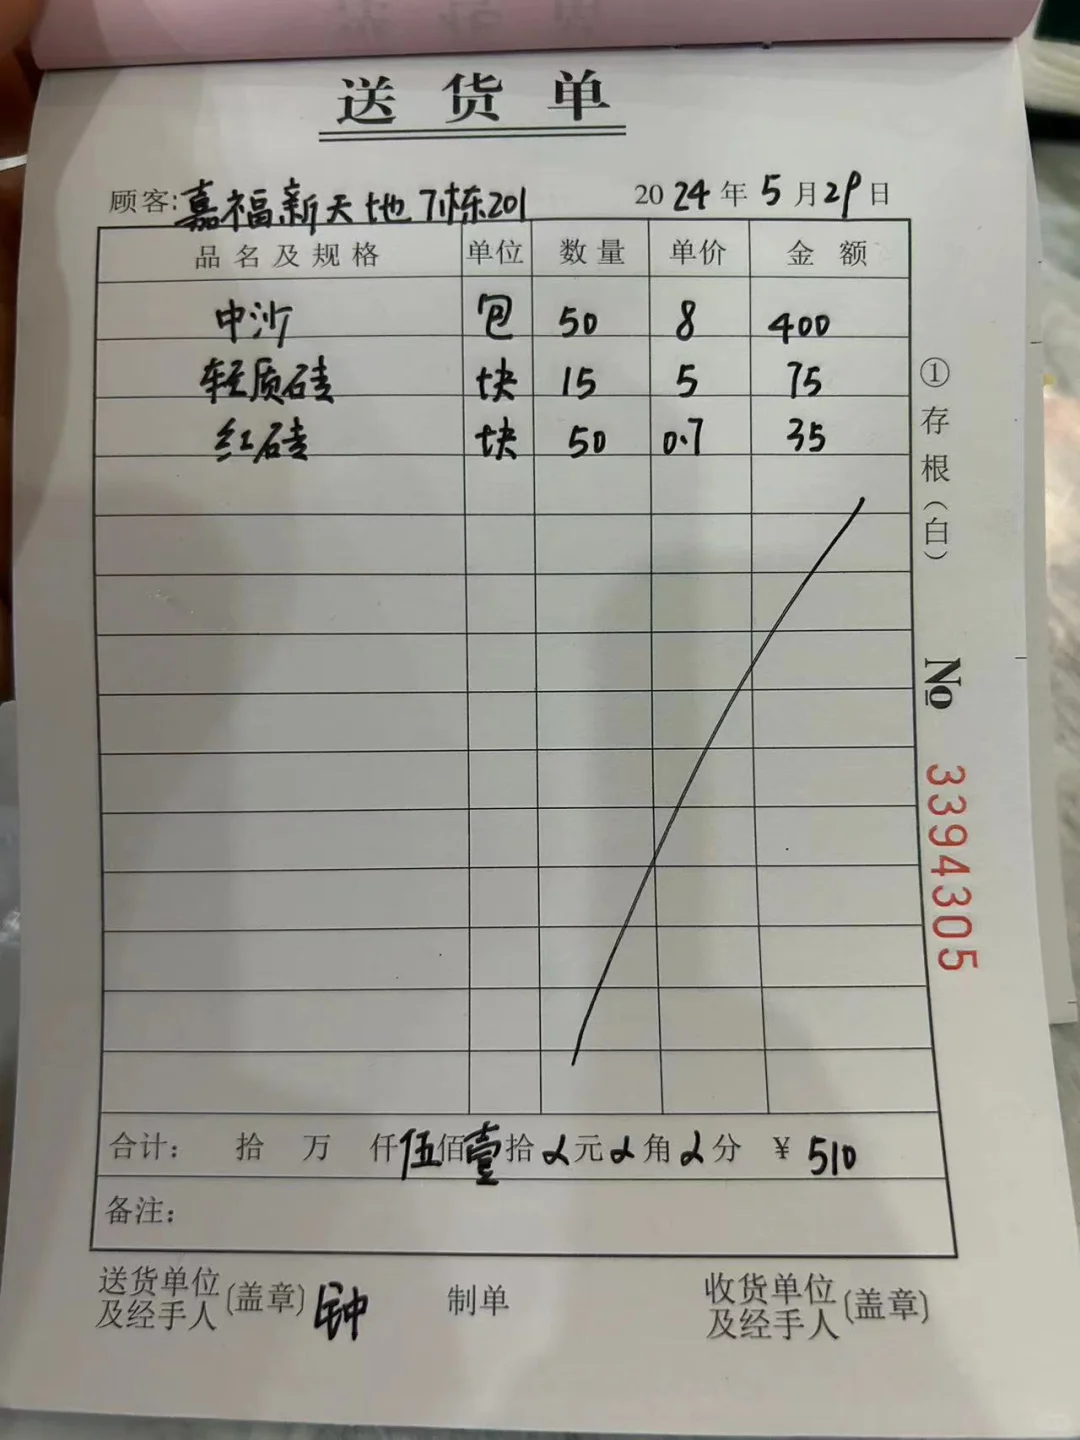 送货单
顾客:嘉福新天地7栋201 2024年5月29日
品名及规格 单位 数量 单价 金额
中沙 包 50 8 400
轻质砖 块 15 5 75
红砖 块 50 0.7 35
合计: 拾 万 仟伍佰壹拾 元 角 分 ¥510
备注:
送货单位及经手人(盖章) 钟 制单 收货单位及经手人(盖章)
①存根(白)
No 3394305